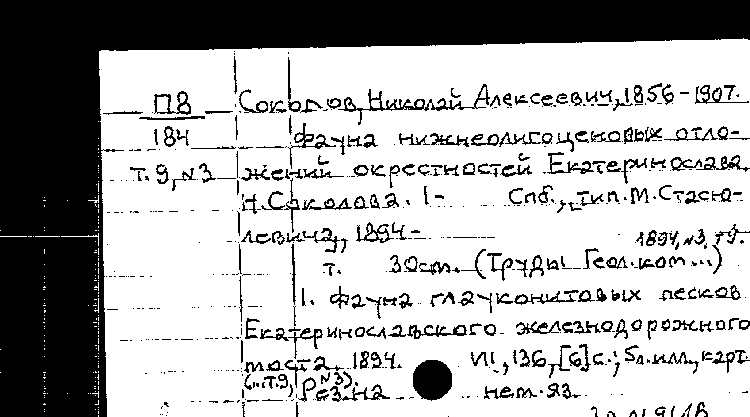 П8 Соколов, Николай Алексеевич, 1856-1907.
184 Фауна нижнеолигоценовых отло-
т.9, №3 жений окрестностей Екатеринослава
Н. Соколова. 1- Спб., тип. М. Стасю-
левича, 1894-
1894, №3, т.9.
т. 30см. (Труды Геол. ком...)
1. Фауна глауконитовых песков
Екатеринославского железнодорожного
моста. 1894. VII, 136, [6] с.; 5 л. илл., карт.
(...т.9, №3).
Рез. на нем. яз.